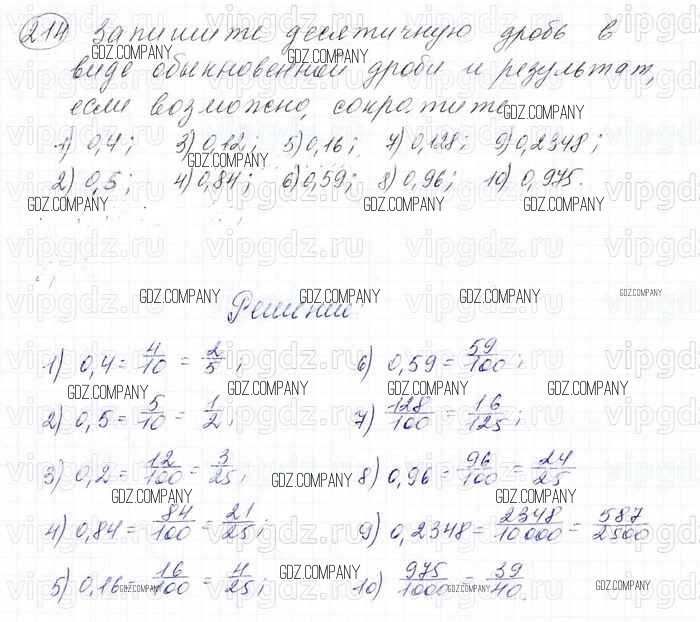 214 Запишите десятичную дробь в
виде обыкновенной дроби и результат,
если возможно, сократите
1) 0,4; 3) 0,12; 5) 0,16; 7) 0,128; 9) 0,2348;
2) 0,5; 4) 0,84; 6) 0,59; 8) 0,96; 10) 0,975.
Решение:
1) 0,4 = 4/10 = 2/5;
2) 0,5 = 5/10 = 1/2;
3) 0,2 = 12/100 = 3/25;
4) 0,84 = 84/100 = 21/25;
5) 0,16 = 16/100 = 4/25;
6) 0,59 = 59/100;
7) 128/100 = 16/125;
8) 0,96 = 96/100 = 24/25
9) 0,2348 = 2348/10000 = 587/2500
10) 975/1000 = 39/40.
GDZ.COMPANY
vipgdz.ru